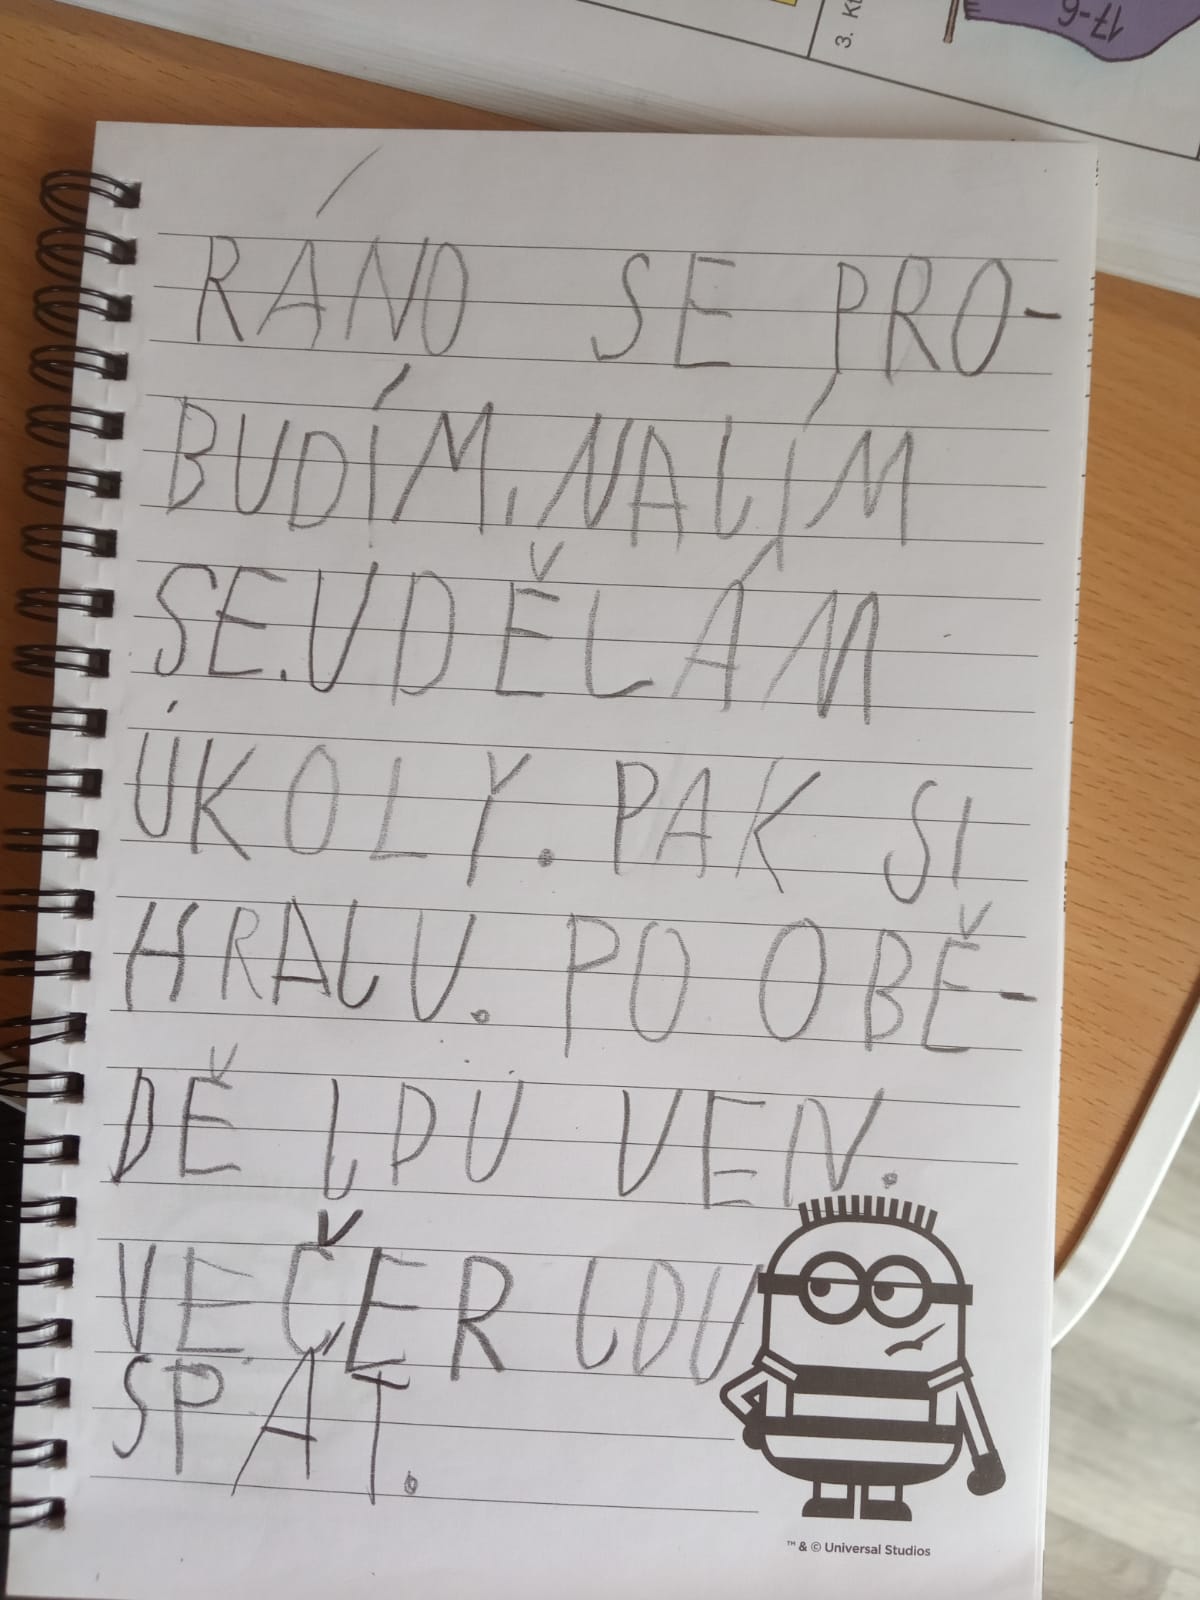 3. K
17-6
RÁNO SE PRO-
BUDÍM. NALÍM
SE. UDĚLÁM
ÚKOLY. PAK SI
HRALU. PO OBĚ-
DĚ LDU VEN.
VEČER LDU
SPÁT.
™ & © Universal Studios